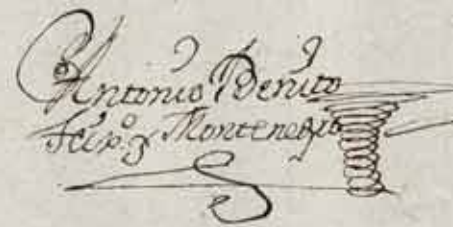 Antonio Benito
Feixº y Montenegro